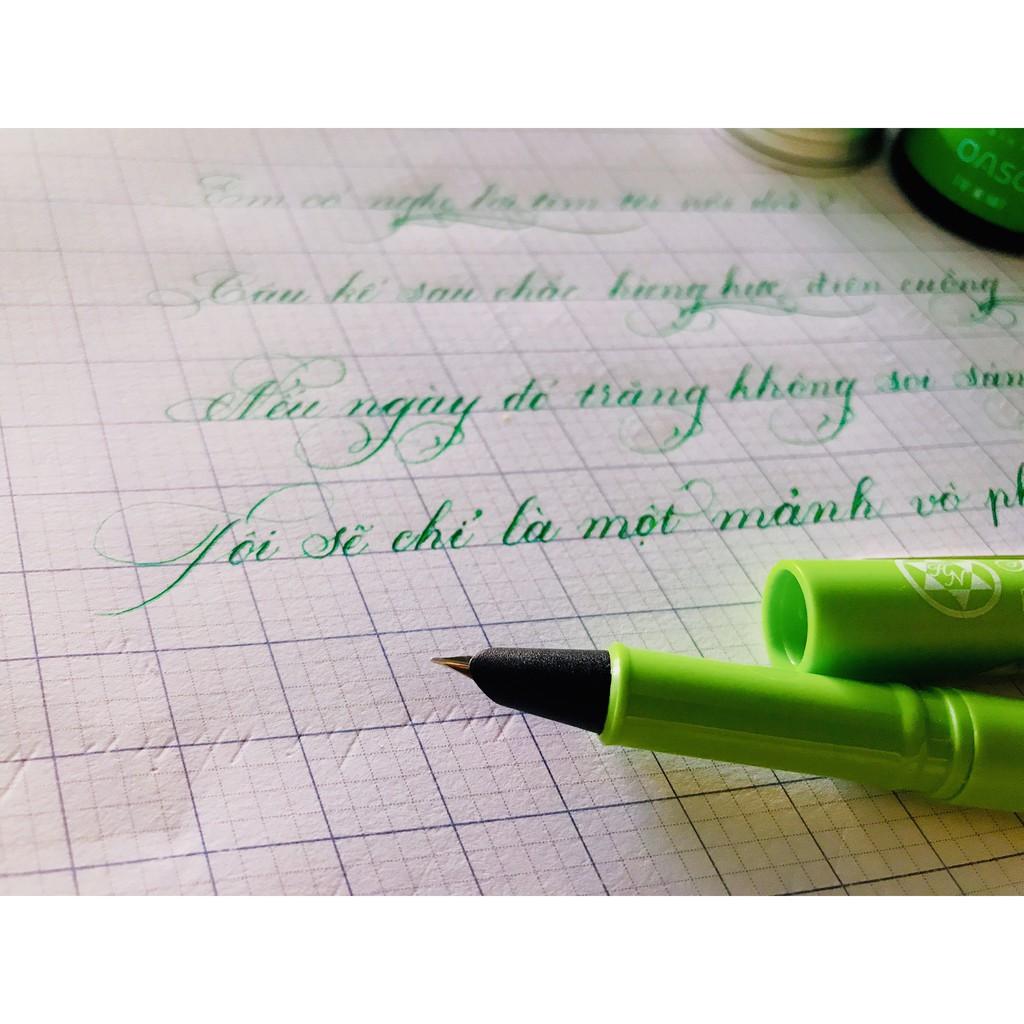 Em có nghe lời tim tôi nói đó ?
Câu kế sau chắc hừng hực điên cuồng
Nếu ngày đó trăng không soi sán
Tôi sẽ chỉ là một mảnh vỏ ph
OASO
HN